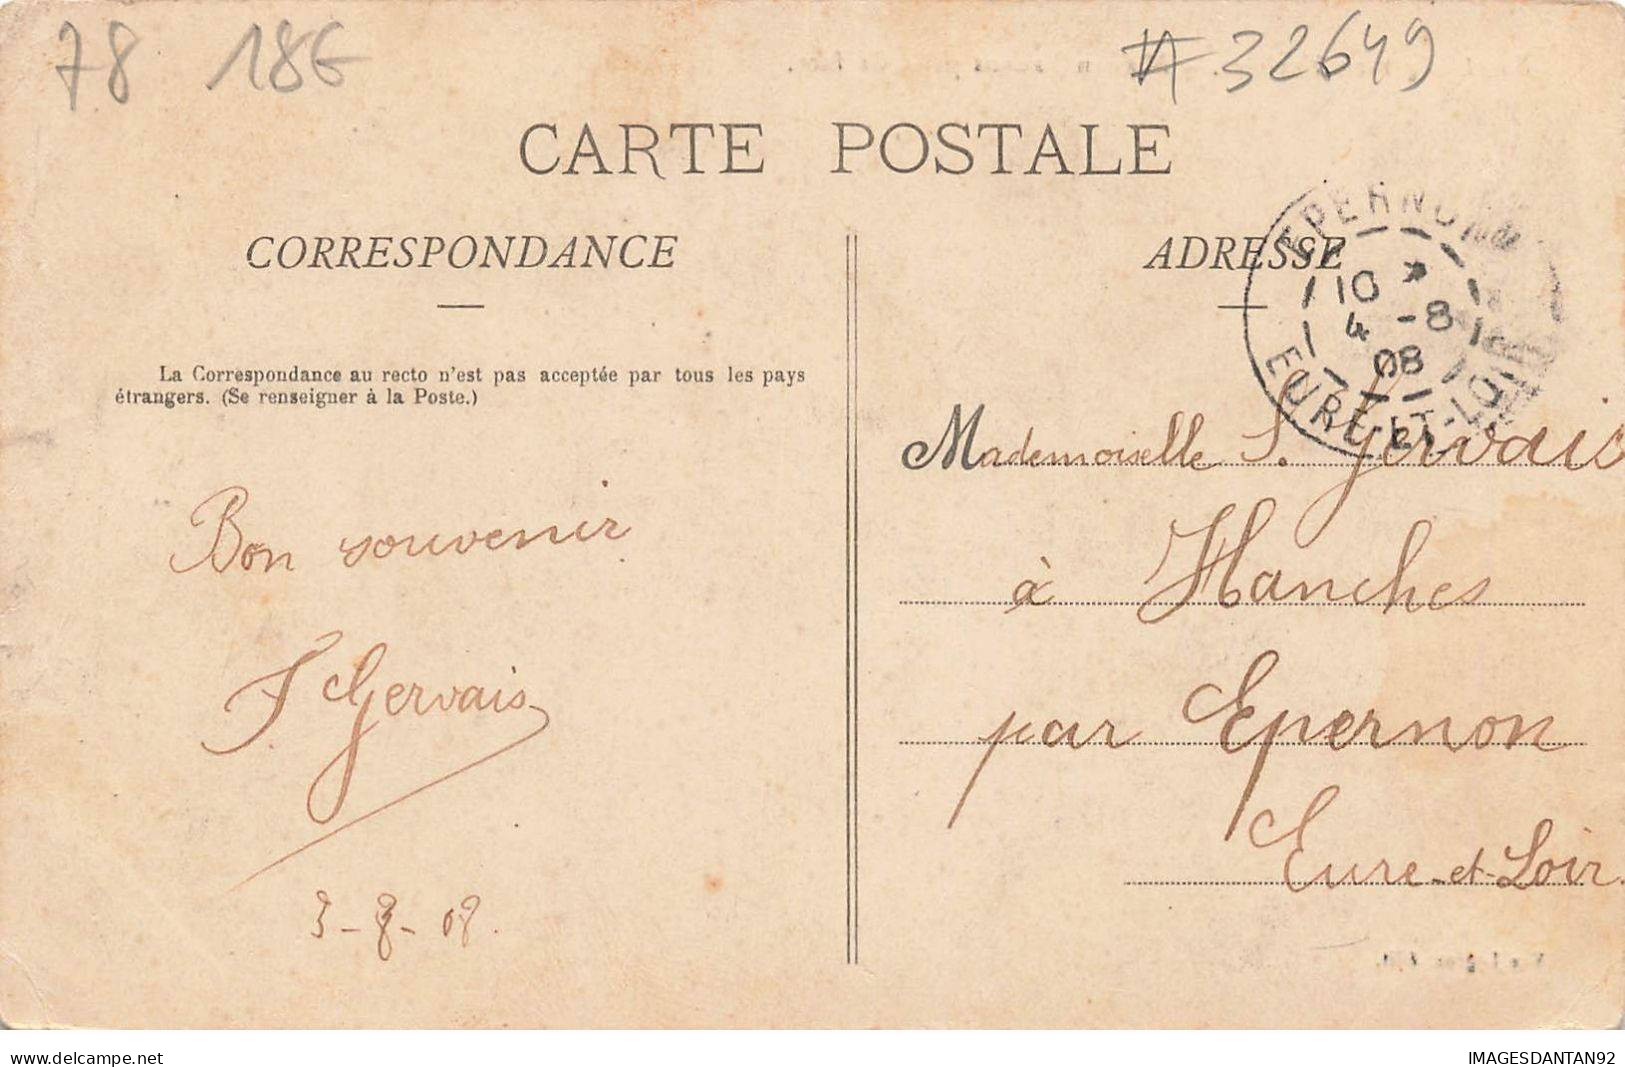 78 18E #32649
CARTE POSTALE
CORRESPONDANCE
ADRESSE
EPERNON
10 * 
4 -8
08
EURE-ET-LOIR
La Correspondance au recto n'est pas acceptée par tous les pays
étrangers. (Se renseigner à la Poste.)
Bon souvenir
F. Gervais
3-8-08.
Mademoiselle S. Gervais
à Hanches
par Epernon
Eure-et-Loir
delcampe.net
IMAGESDANTAN92